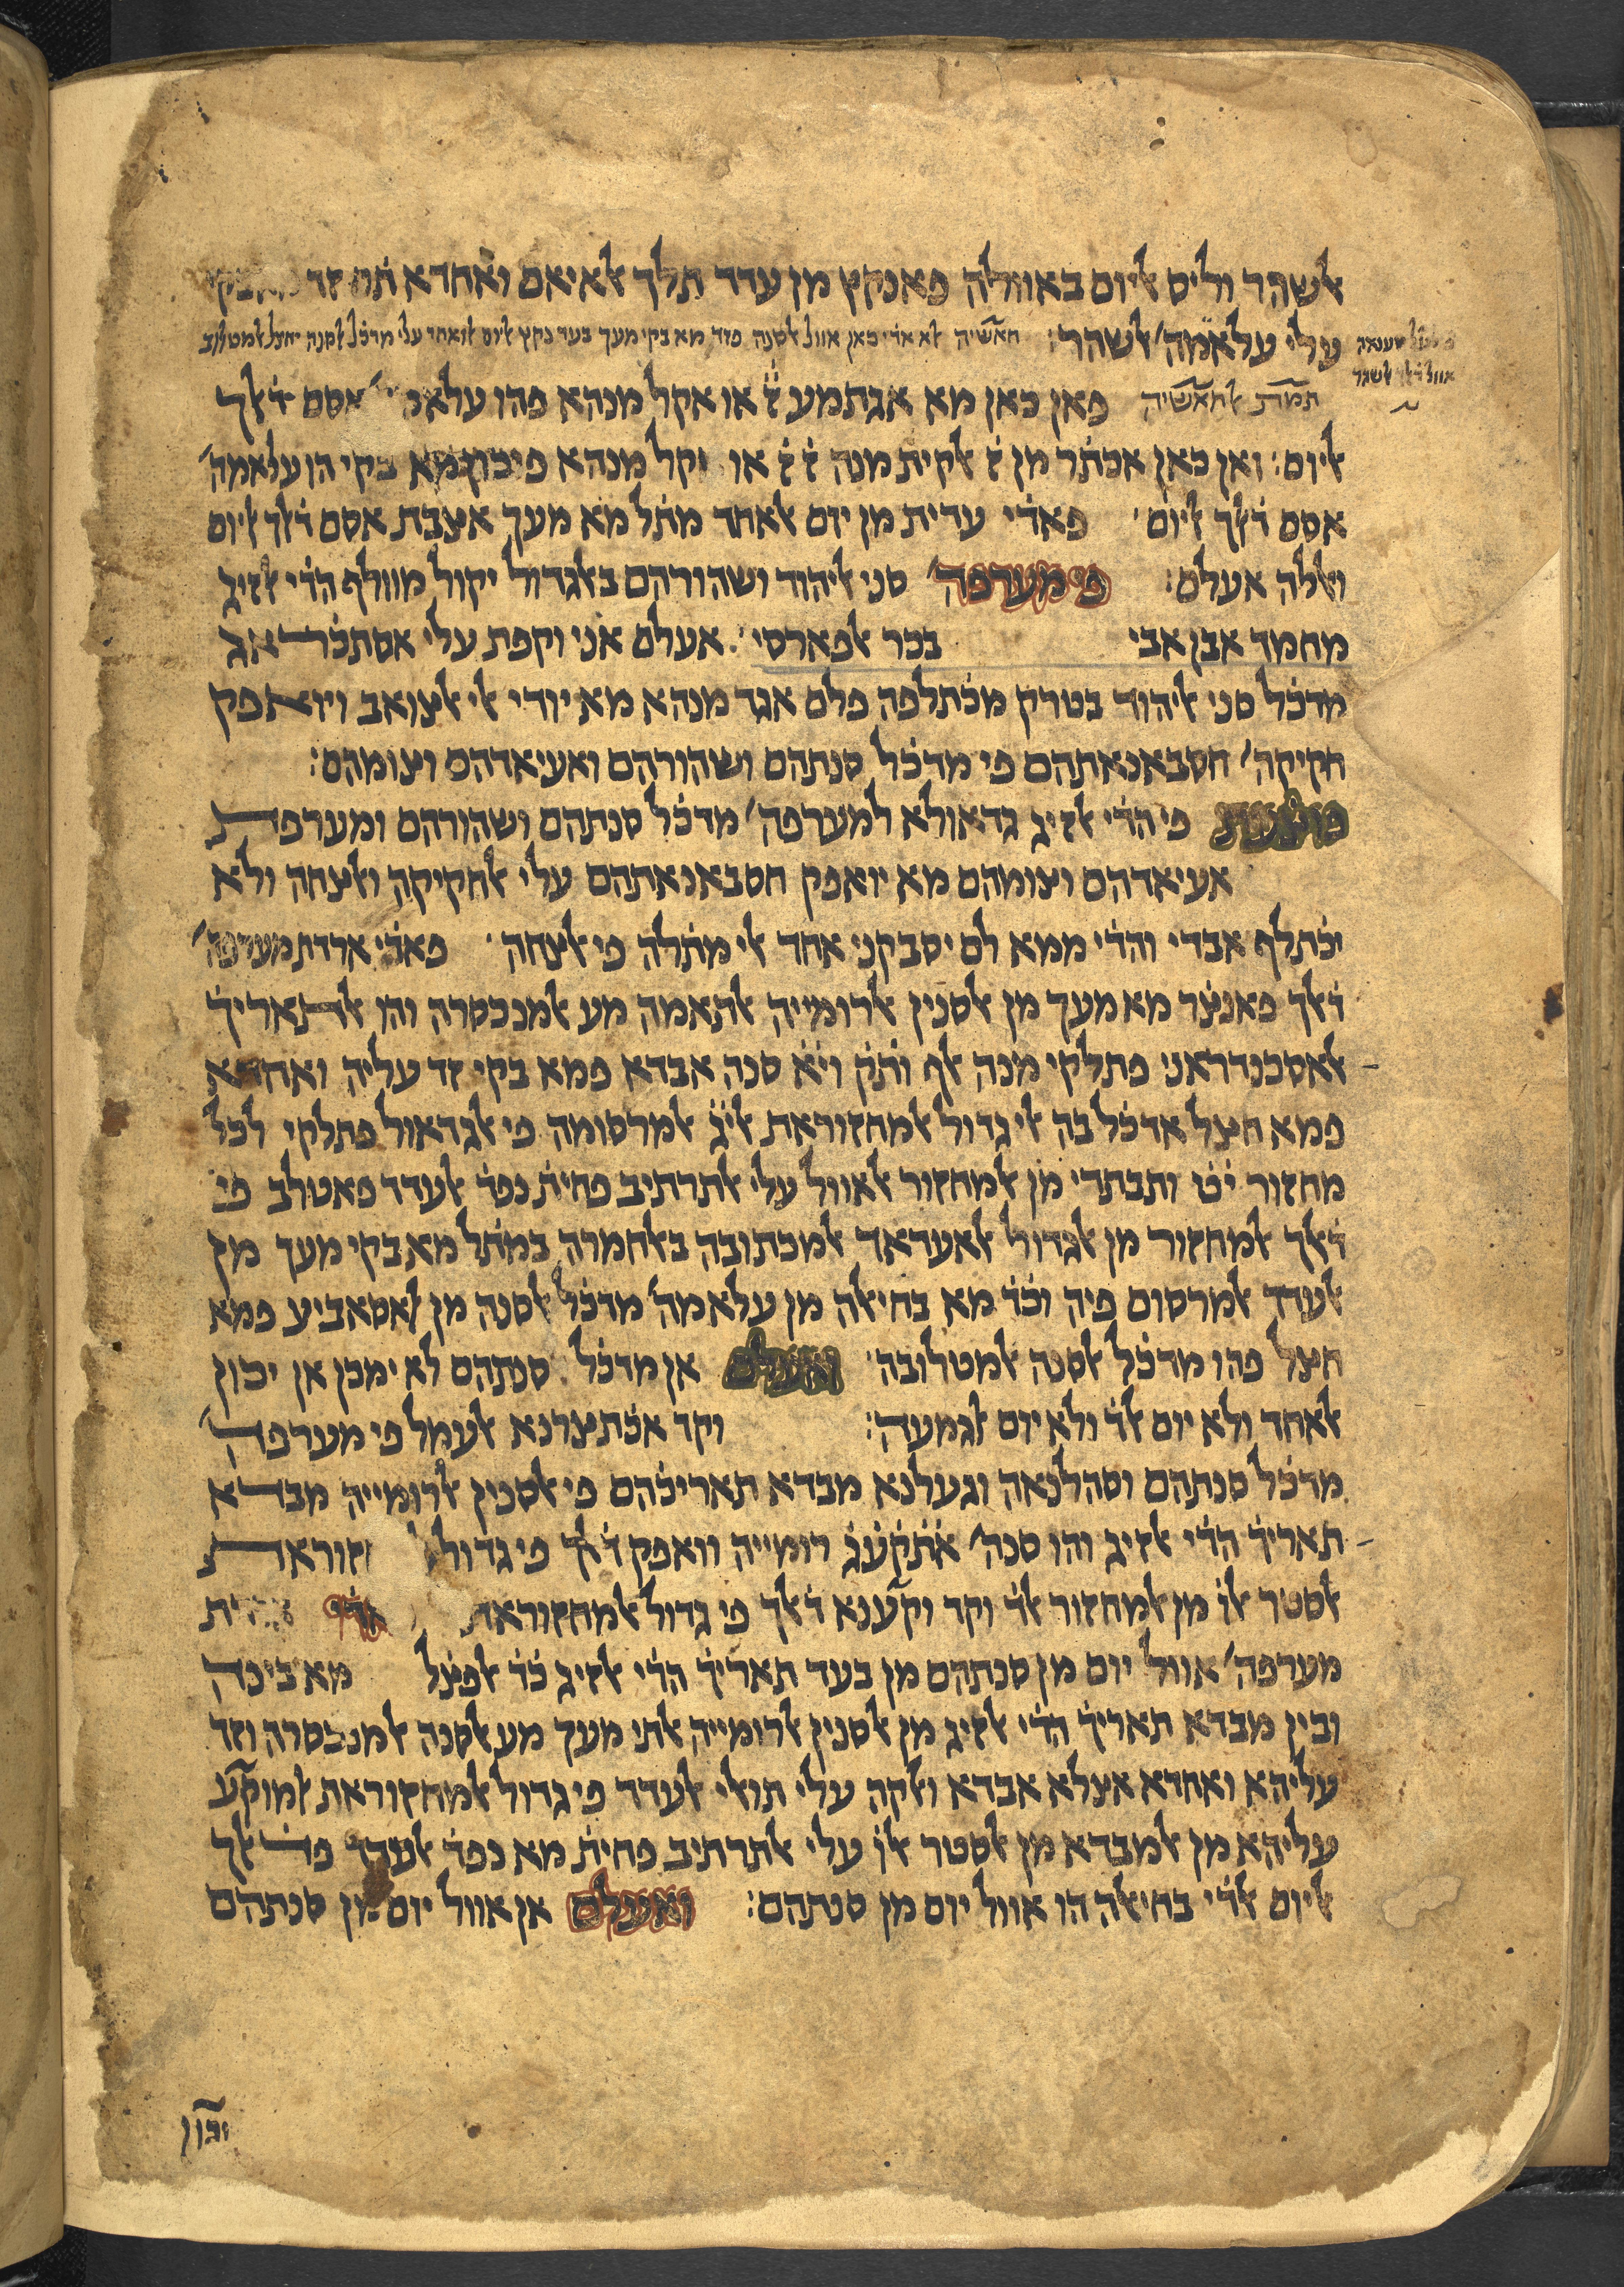 אלשהר וליס אליום באוולה פאנקץ מן עדד תלך אלאיאם ואחדא תם זד
עלי עלאמה̈ אלשהר: חאשיה לא אדי כאן אוול אלסנה פזד מא בקי מעך בעד נקץ אליום אלואחד עלי מדכ̇ל אלסנה יחצל אלמטלוב
אוול דלך אלשהר
תמת אלחאשיה פאן כאן מא אגתמע ז̈ או אקל מנהא פהו עלאמה̈ אסם ד̇לך
אליום: ואן כאן אכת̇ר מן ז̈ אלקית מנה ז̈ ז̈ או אקל מנהא פיכון מא בקי הו עלאמה̈
אסם ד̇לך אליום: פאד̇י עדית מן יום אלאחד מת̇ל מא מעך אצבת אסם ד̇לך אליום
ואללה אעלם: פי מערפה̈ סני אליהוד ושהורהם באלגדול יקול מוולף הד̇י אלזיג
מחמד אבן אבי בכר אלפארסי: אעלם אני וקפת עלי אסתכ̇ראג
מדכ̇ל סני אליהוד בטרק מכ̇תלפה פלם אגד מנהא מא יודי אלי אלצואב ויואפק
חקיקה̈ חסבאנאתהם פי מדכ̇ל סנתהם ושהורהם ואעיאדהם וצומהם:
פוצ̇עת פי הד̇י אלזיג גדאולא למערפה̈ מדכ̇ל סנתהם ושהורהם ומערפת
אעיאדהם וצומהם מא יואפק חסבאנאתהם עלי אלחקיקה ואלצחה ולא
יכ̇תלף אבדי והד̇י ממא לם יסבקני אחד אלי מת̇לה פי אלצחה: פאד̇י ארדת מערפה̈
ד̇לך פאנצ̇ר מא מעך מן אלסנין אלרומייה אלתאמה מע אלמנכסרה והו אלתאריך̇
אלאסכנדראני פתלקי מנה אלף ות̇ק̇ וי̇א̇ סנה אבדא פמא בקי זד עליה ואחדא
פמא חצל אדכ̇ל בה אלי גדול אלמחזוראת אלי̇ג̇ אלמרסומה פי אלגדאול פתלקי לכל
מחזור י̇ט̇ ותבתדי מן אלמחזור אלאוול עלי אלתרתיב פחית̇ נפד̇ אלעדד פאטלב פי
ד̇לך אלמחזור מן אלגדול אלאעדאד אלמכתובה באלחמרה במת̇ל מא בקי מעך מן
אלעדד אלמרסום פיה וכ̇ד̇ מא בחיאלה מן עלאמה̈ מדכ̇ל אלסנה מן אלאסאביע פמא
חצל פהו מדכ̇ל אלסנה אלמטלובה: ואעלם אן מדכ̇ל סנתהם לא ימכן אן יכון
אלאחד ולא יום אלד̇ ולא יום אלגמעה: וקד אכ̇תצרנא אלעמל פי מערפה̈
מדכ̇ל סנתהם וסהלנאה וגעלנא מבדא תאריכ̇הם פי אלסנין אלרומייה מבדא
תאריך̇ הד̇י אלזיג והו סנה̈ א̇ת̇ק̇ע̇ג̇ רומייה וואפק ד̇לך פי גדול
אלסטר אלו̇ מן אלמחזור אלד̇ וקד וקענא ד̇לך פי גדול אלמחזוראת
מערפה̈ אוול יום מן סנתהם מן בעד תאריך̇ הד̇י אלזיג כ̇ד̇ אלפצ̇ל מא בינה
ובין מבדא תאריך̇ הד̇י אלזיג מן אלסנין אלרומייה אלתי מעך מע אלסנה אלמנכסרה וזד
עליהא ואחדא אצלא אבדא ואלקה עלי תואלי אלעדד פי גדול אלמחזוראת אלמוקע
עליהא מן אלמבדא מן אלסטר אלו̇ עלי אלתרתיב פחית̇ מא נפד̇ אלעדד פד̇אלך
אליום אלד̇י בחיאלה הו אוול יום מן סנתהם: ואעלם אן אוול יום מן סנתהם
יכון